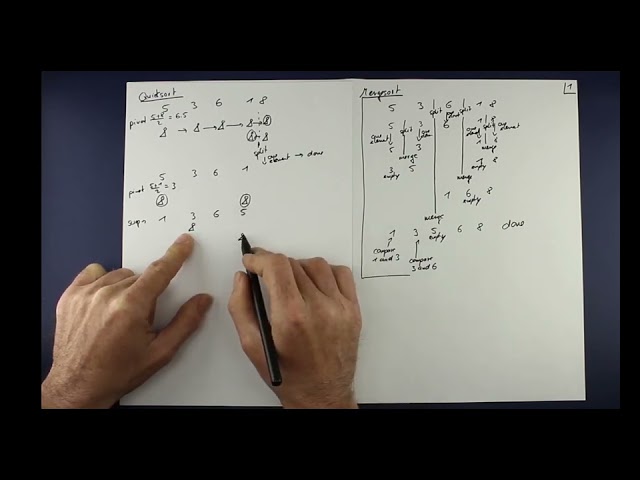 Quicksort
5 3 6 1 8
pivot 5+8/2 = 6.5
8 → 8 → 8 → 8 → 8
8 8
split
one element → done
5 3 6 1
pivot 5+1/2 = 3
8 8
swap 1 3 6 5
8
Mergesort
1
5 3 split 6 split 1 8
5 split 3 6 1 split 8
one element one element one element one element
5 3 1 8
merge merge
3 5 1 8
empty empty
merge
1 6 8
merge
1 3 5 6 8 done
empty
compare 1 and 3
compare 3 and 6